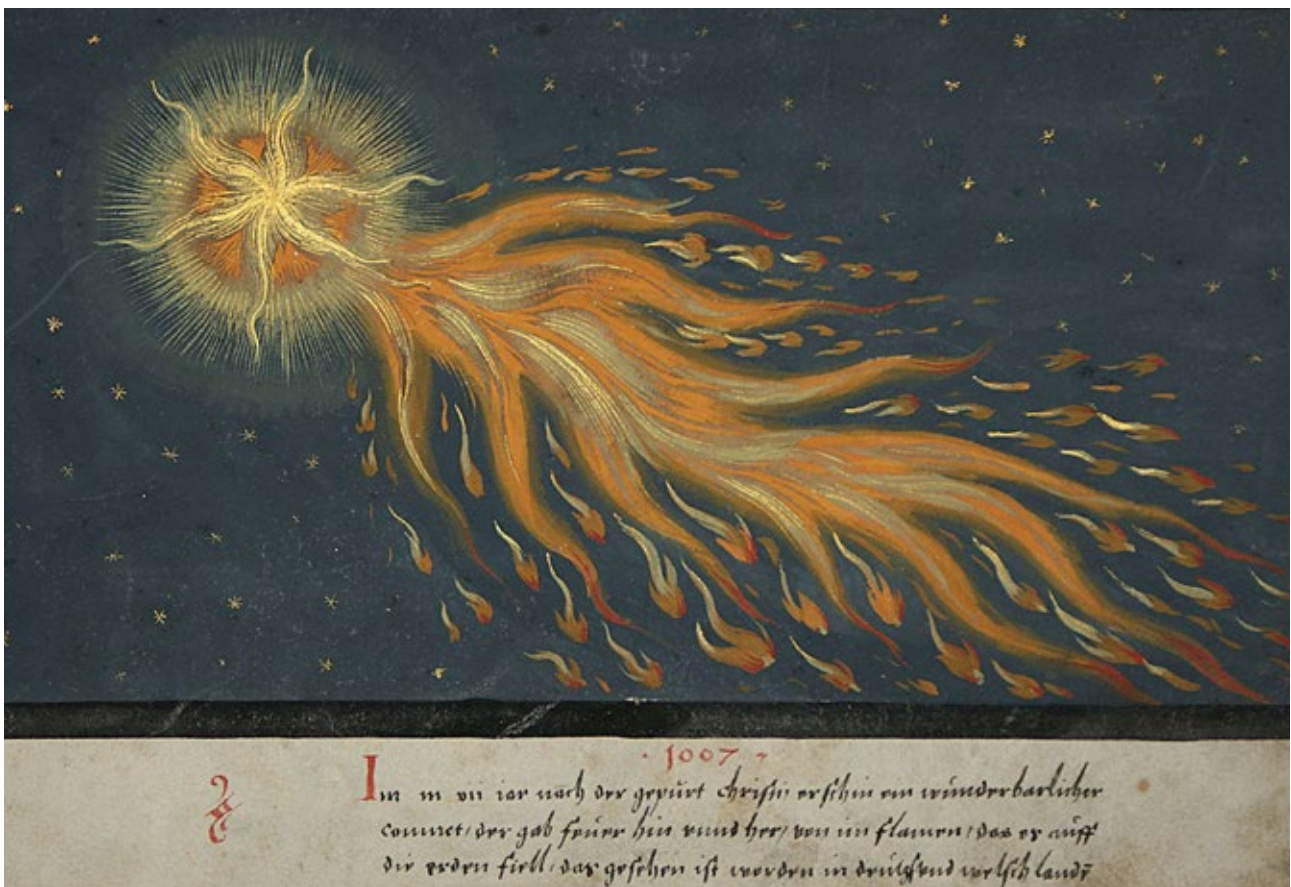 · 1007 ·
Im m vii iar nach der gepurt christi erschin ein wunderbarlicher
commet, der gab feuer hin vnnd her, von im flamen, das er auff
die erden fiell, das gesehen ist worden in welsch landt